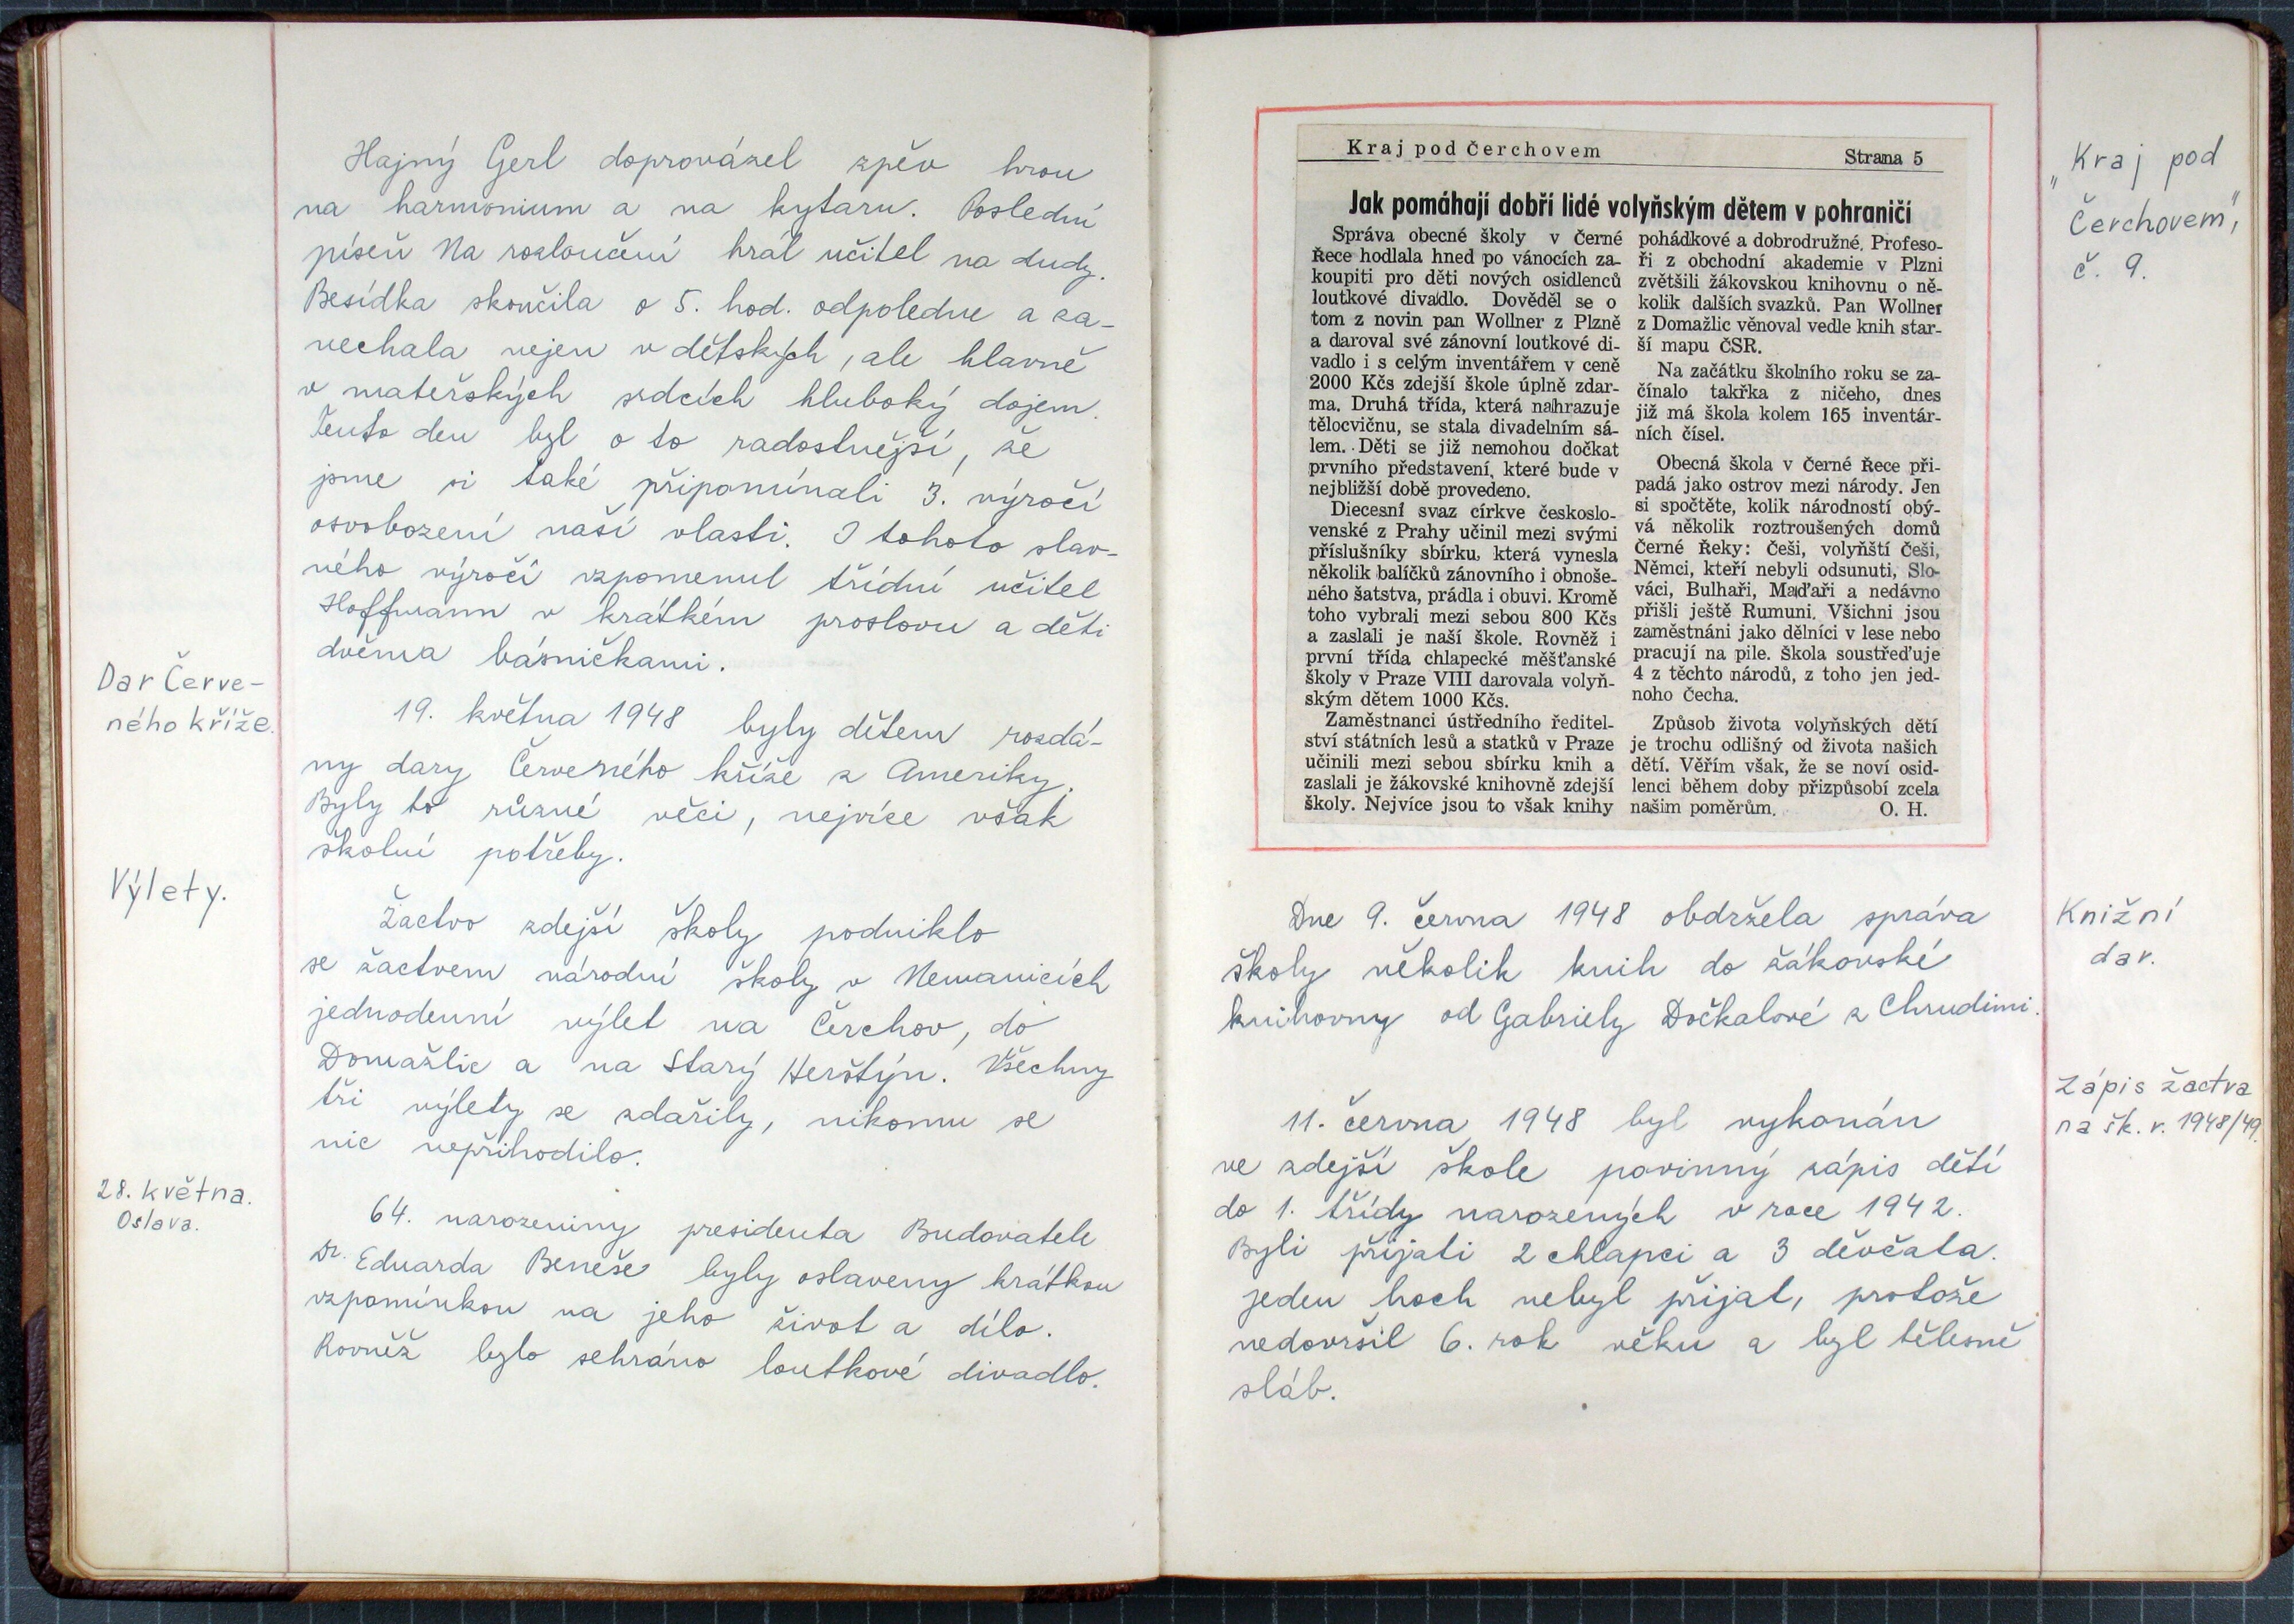 Hajný Gerl doprovázel zpěv hrou
na harmonium a na kytaru. Poslední
píseň Na rozloučení hrál učitel na dudy.
Besídka skončila o 5. hod. odpoledne a za-
nechala nejen v dětských, ale hlavně
v mateřských srdcích hluboký dojem.
Tento den byl o to radostnější, že
jsme si také připomínali 3. výročí
osvobození naší vlasti. I tohoto slav-
ného výročí vzpomenul třídní učitel
Hoffmann v krátkém proslovu a děti
dvěma básničkami.
Dar Červe-
ného kříže.
19. května 1948 byly dětem rozdá-
ny dary Červeného kříže z Ameriky.
Byly to různé věci, nejvíce však
školní potřeby.
Výlety.
Žactvo zdejší školy podniklo
se žactvem národní školy v Nemanicích
jednodenní výlet na Čerchov, do
Domažlic a na Starý Herštýn. Všechny
tři výlety se zdařily, nikomu se
nic nepřihodilo.
28. května.
Oslava.
64. narozeniny presidenta Budovatele
Dr. Eduarda Beneše byly oslaveny krátkou
vzpomínkou na jeho život a dílo.
Rovněž bylo sehráno loutkové divadlo.
Kraj pod Čerchovem
Strana 5
Jak pomáhají dobří lidé volyňským dětem v pohraničí
Správa obecné školy v Černé
Řece hodlala hned po vánocích za-
koupiti pro děti nových osidlenců
loutkové divadlo. Dověděl se o
tom z novin pan Wollner z Plzně
a daroval své zánovní loutkové di-
vadlo i s celým inventářem v ceně
2000 Kčs zdejší škole úplně zdar-
ma. Druhá třída, která nahrazuje
tělocvičnu, se stala divadelním sá-
lem. Děti se již nemohou dočkat
prvního představení, které bude v
nejbližší době provedeno.
Diecesní svaz církve českoslo-
venské z Prahy učinil mezi svými
příslušníky sbírku, která vynesla
několik balíčků zánovního i obnoše-
ného šatstva, prádla i obuvi. Kromě
toho vybrali mezi sebou 800 Kčs
a zaslali je naší škole. Rovněž i
první třída chlapecké měšťanské
školy v Praze VIII darovala volyň-
ským dětem 1000 Kčs.
Zaměstnanci ústředního ředitel-
ství státních lesů a statků v Praze
učinili mezi sebou sbírku knih a
zaslali je žákovské knihovně zdejší
školy. Nejvíce jsou to však knihy
pohádkové a dobrodružné. Profeso-
ři z obchodní akademie v Plzni
zvětšili žákovskou knihovnu o ně-
kolik dalších svazků. Pan Wollner
z Domažlic věnoval vedle knih star-
ší mapu ČSR.
Na začátku školního roku se za-
čínalo takřka z ničeho, dnes
již má škola kolem 165 inventár-
ních čísel.
Obecná škola v Černé Řece při-
padá jako ostrov mezi národy. Jen
si spočtěte, kolik národností obý-
vá několik roztroušených domů
Černé Řeky: Češi, volyňští Češi,
Němci, kteří nebyli odsunuti, Slo-
váci, Bulhaři, Maďaři a nedávno
přišli ještě Rumuni. Všichni jsou
zaměstnáni jako dělníci v lese nebo
pracují na pile. Škola soustřeďuje
4 z těchto národů, z toho jen jed-
noho Čecha.
Způsob života volyňských dětí
je trochu odlišný od života našich
dětí. Věřím však, že se noví osid-
lenci během doby přizpůsobí zcela
našim poměrům. O. H.
„Kraj pod
Čerchovem",
č. 9.
Dne 9. června 1948 obdržela správa
školy několik knih do žákovské
knihovny od Gabriely Dočkalové z Chrudimi.
Knižní
dar.
11. června 1948 byl vykonán
ve zdejší škole povinný zápis dětí
do 1. třídy narozených v roce 1942.
Byli přijati 2 chlapci a 3 děvčata.
Jeden hoch nebyl přijat, protože
nedovršil 6. rok věku a byl tělesně
sláb.
Zápis žactva
na šk. r. 1948/49.